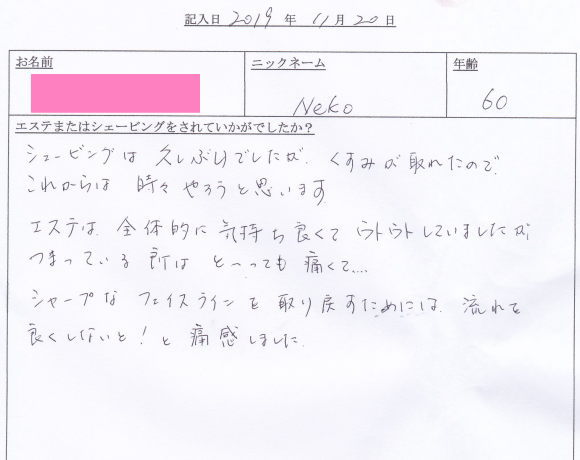 記入日 2019 年 11 月 20 日
お名前 ニックネーム 年齢
Neko 60
エステまたはシェービングをされていかがでしたか?
シェービングは 久しぶりでしたが、くすみが取れたので
これからは 時々 やろうと思います
エステは 全体的に 気持ち良くて ウトウトしていましたが、
つまっている 所は と〜っても 痛くて....
シャープな フェイスラインを 取り戻すためには 流れを
良くしないと!と 痛感しました